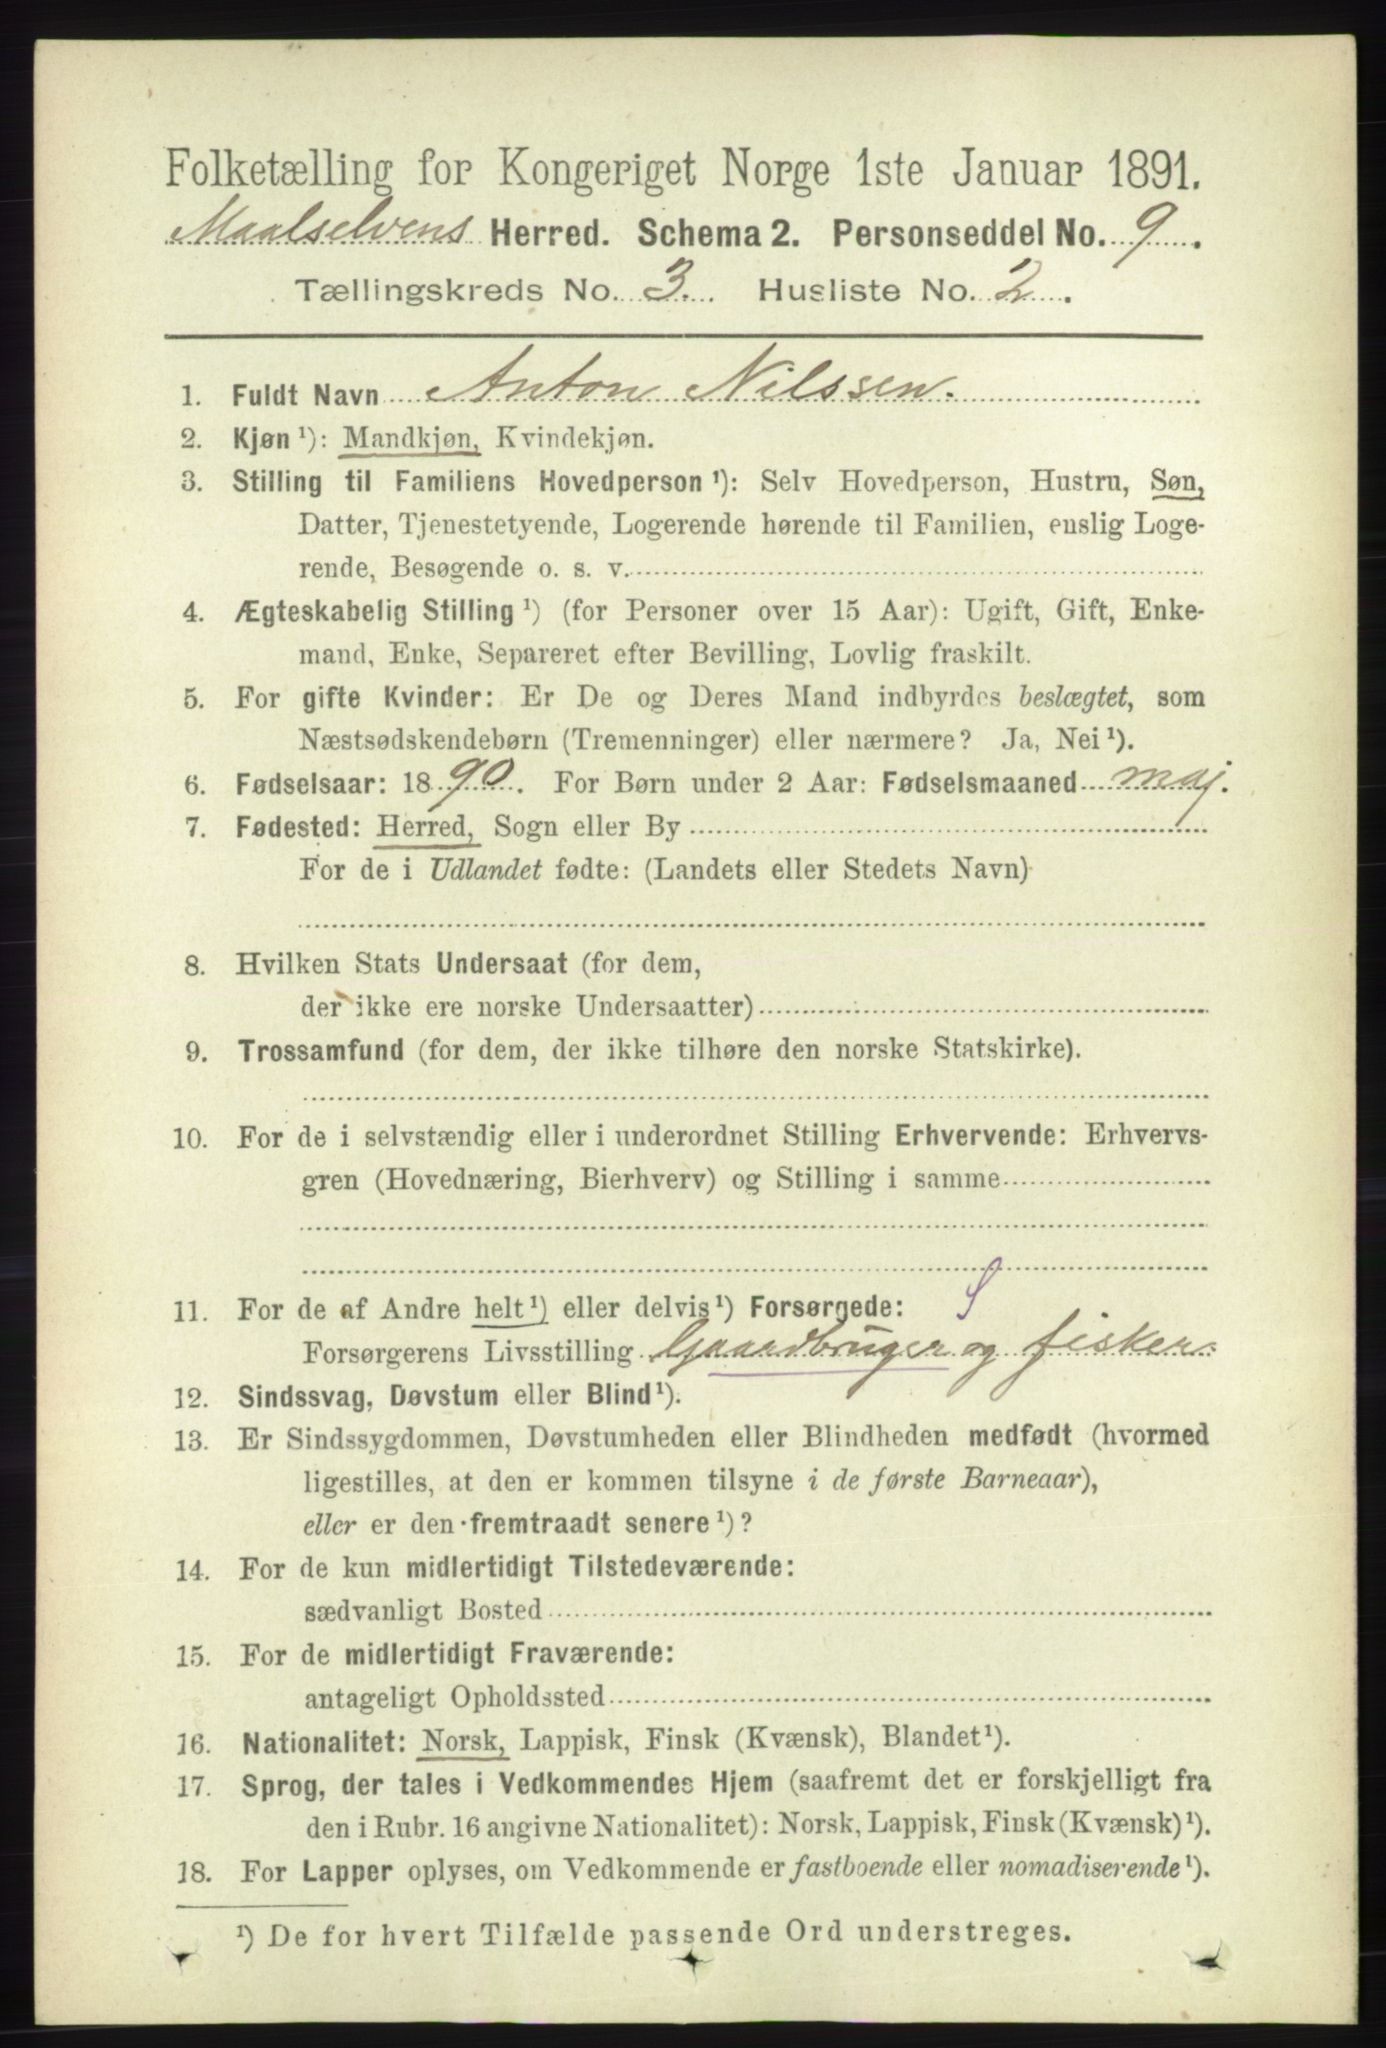 Folketælling for Kongeriget Norge 1ste Januar 1891.
Maalselvens Herred. Schema 2. Personseddel No. 9.
Tællingskreds No. 3. Husliste No. 2.
1. Fuldt Navn Anton Nilssen.
2. Kjøn ¹): Mandkjøn, Kvindekjøn.
3. Stilling til Familiens Hovedperson ¹): Selv Hovedperson, Hustru, Søn,
Datter, Tjenestetyende, Logerende hørende til Familien, enslig Loge-
rende, Besøgende o. s. v.
4. Ægteskabelig Stilling ¹) (for Personer over 15 Aar): Ugift, Gift, Enke-
mand, Enke, Separeret efter Bevilling, Lovlig fraskilt.
5. For gifte Kvinder: Er De og Deres Mand indbyrdes beslægtet, som
Næstsødskendebørn (Tremenninger) eller nærmere? Ja, Nei ¹).
6. Fødselsaar: 1890. For Børn under 2 Aar: Fødselsmaaned maj.
7. Fødested: Herred, Sogn eller By
For de i Udlandet fødte: (Landets eller Stedets Navn)
8. Hvilken Stats Undersaat (for dem,
der ikke ere norske Undersaatter)
9. Trossamfund (for dem, der ikke tilhøre den norske Statskirke).
10. For de i selvstændig eller i underordnet Stilling Erhvervende: Erhvervs-
gren (Hovednæring, Bierhverv) og Stilling i samme
11. For de af Andre helt ¹) eller delvis ¹) Forsørgede: S
Forsørgerens Livsstilling Gaardbruger og fisker.
12. Sindssvag, Døvstum eller Blind ¹).
13. Er Sindssygdommen, Døvstumheden eller Blindheden medfødt (hvormed
ligestilles, at den er kommen tilsyne i de første Barneaar),
eller er den fremtraadt senere ¹)?
14. For de kun midlertidigt Tilstedeværende:
sædvanligt Bosted
15. For de midlertidigt Fraværende:
antageligt Opholdssted
16. Nationalitet: Norsk, Lappisk, Finsk (Kvænsk), Blandet ¹).
17. Sprog, der tales i Vedkommendes Hjem (saafremt det er forskjelligt fra
den i Rubr. 16 angivne Nationalitet): Norsk, Lappisk, Finsk (Kvænsk) ¹).
18. For Lapper oplyses, om Vedkommende er fastboende eller nomadiserende ¹).
¹) De for hvert Tilfælde passende Ord understreges.